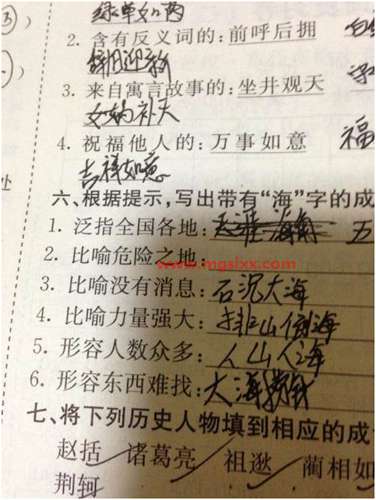 绿草如茵
2. 含有反义词的：前呼后拥
辞旧迎新
3. 来自寓言故事的：坐井观天
女娲补天
4. 祝福他人的：万事如意 福
吉祥如意
六、根据提示，写出带有“海”字的成
1. 泛指全国各地： 五
2. 比喻危险之地：
www.mgslxx.com
3. 比喻没有消息：石沉大海
4. 比喻力量强大：排山倒海
5. 形容人数众多：人山人海
6. 形容东西难找：大海捞针
七、将下列历史人物填到相应的成
赵括 诸葛亮 祖逖 蔺相如
荆轲